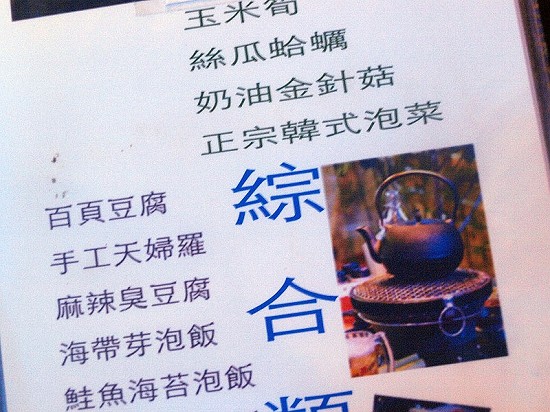 玉米筍
絲瓜蛤蠣
奶油金針菇
正宗韓式泡菜
綜合類
百頁豆腐
手工天婦羅
麻辣臭豆腐
海帶芽泡飯
鮭魚海苔泡飯